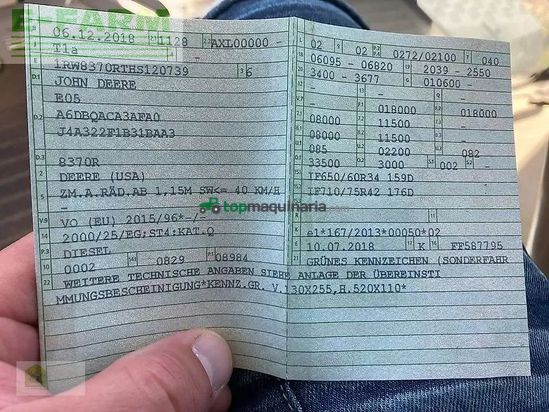 E-FARM
06.12.2018 1128 AXL00000 -
T1a
1RW8370RTHS120739 6
JOHN DEERE
E05
A6DBQACA3AFA0
J4A322F1B31BAA3
8370R
DEERE (USA)
ZM.A.RÄD.AB 1,15M SW<= 40 KM/H
VO (EU) 2015/96*-/-
2000/25/EG;ST4:KAT.Q
DIESEL
0002 0829 08984
02 02 0272/02100 040
06095 - 06820 2039 - 2550
3400 - 3677 010600 -
- - -
- 018000 018000
08000 11500 -
08000 11500 -
085 02200 082
33500 3000 002 -
IF650/60R34 159D
IF710/75R42 176D
-
topmaquinaria
e1*167/2013*00050*02
10.07.2018 K FF587795
GRÜNES KENNZEICHEN (SONDERFAHR
WEITERE TECHNISCHE ANGABEN SIEHE ANLAGE DER ÜBEREINSTI
MMUNGSBESCHEINIGUNG*KENNZ.GR. V.130X255,H.520X110*